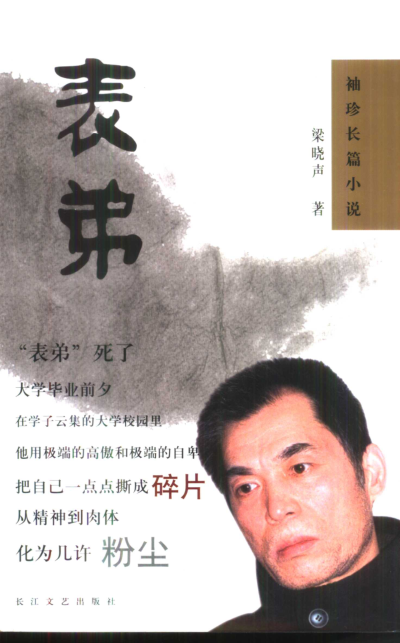 表弟
袖珍长篇小说
梁晓声 著
“表弟”死了
大学毕业前夕
在学子云集的大学校园里
他用极端的高傲和极端的自卑
把自己一点点撕成碎片
从精神到肉体
化为几许 粉尘
长江文艺出版社